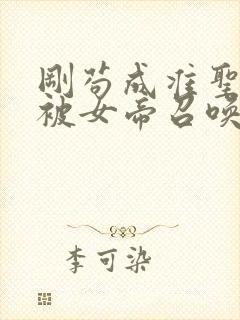 剛苟成准聖
被女帝召喚
李可染